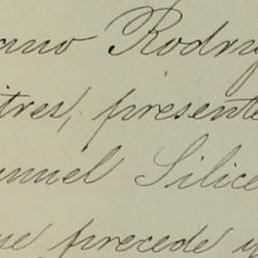 ano Rodrig
tres, presente
anuel Silice
ue precede y